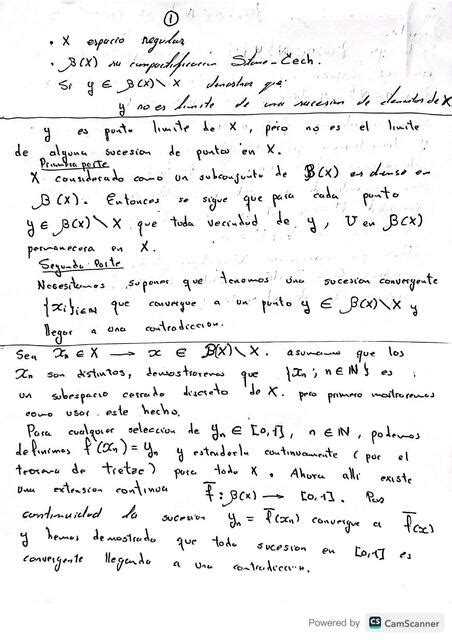 ①
• X espacio regular
• β(X) su compactificación Stone-Cech.
Si y ∈ β(X)\X demostrar que
y no es limite de una sucesion de elementos de X
y es punto limite de X, pero no es el limite
de alguna sucesion de puntos en X.
Primera parte
X considerado como un subconjunto de β(X) es denso en
β(X). Entonces se sigue que para cada punto
y ∈ β(X)\X que toda vecindad de y, U en β(X)
permanecera en X.
Segunda Parte
Necesitamos suponer que tenemos una sucesion convergente
{xi}i∈N que convergue a un punto y ∈ β(X)\X y
llegar a una contradiccion.
Sea xn ∈ X → x ∈ β(X)\X. asumamos que los
xn son distintos, demostraremos que {xn; n ∈ N} es
un subespacio cerrado discreto de X. pero primero mostraremos
como usar este hecho.
Para cualquier seleccion de yn ∈ [0,1], n ∈ N, podemos
definirnos f(xn) = yn y extenderla continuamente (por el
teorema de tietze) para todo X. Ahora alli existe
una extension continua f̄ : β(X) → [0,1]. Por
continuidad la sucesion yn = f̄(xn) convergue a f̄(x)
y hemos demostrado que toda sucesion en [0,1] es
convergente llegando a una contradiccion.
Powered by CS CamScanner